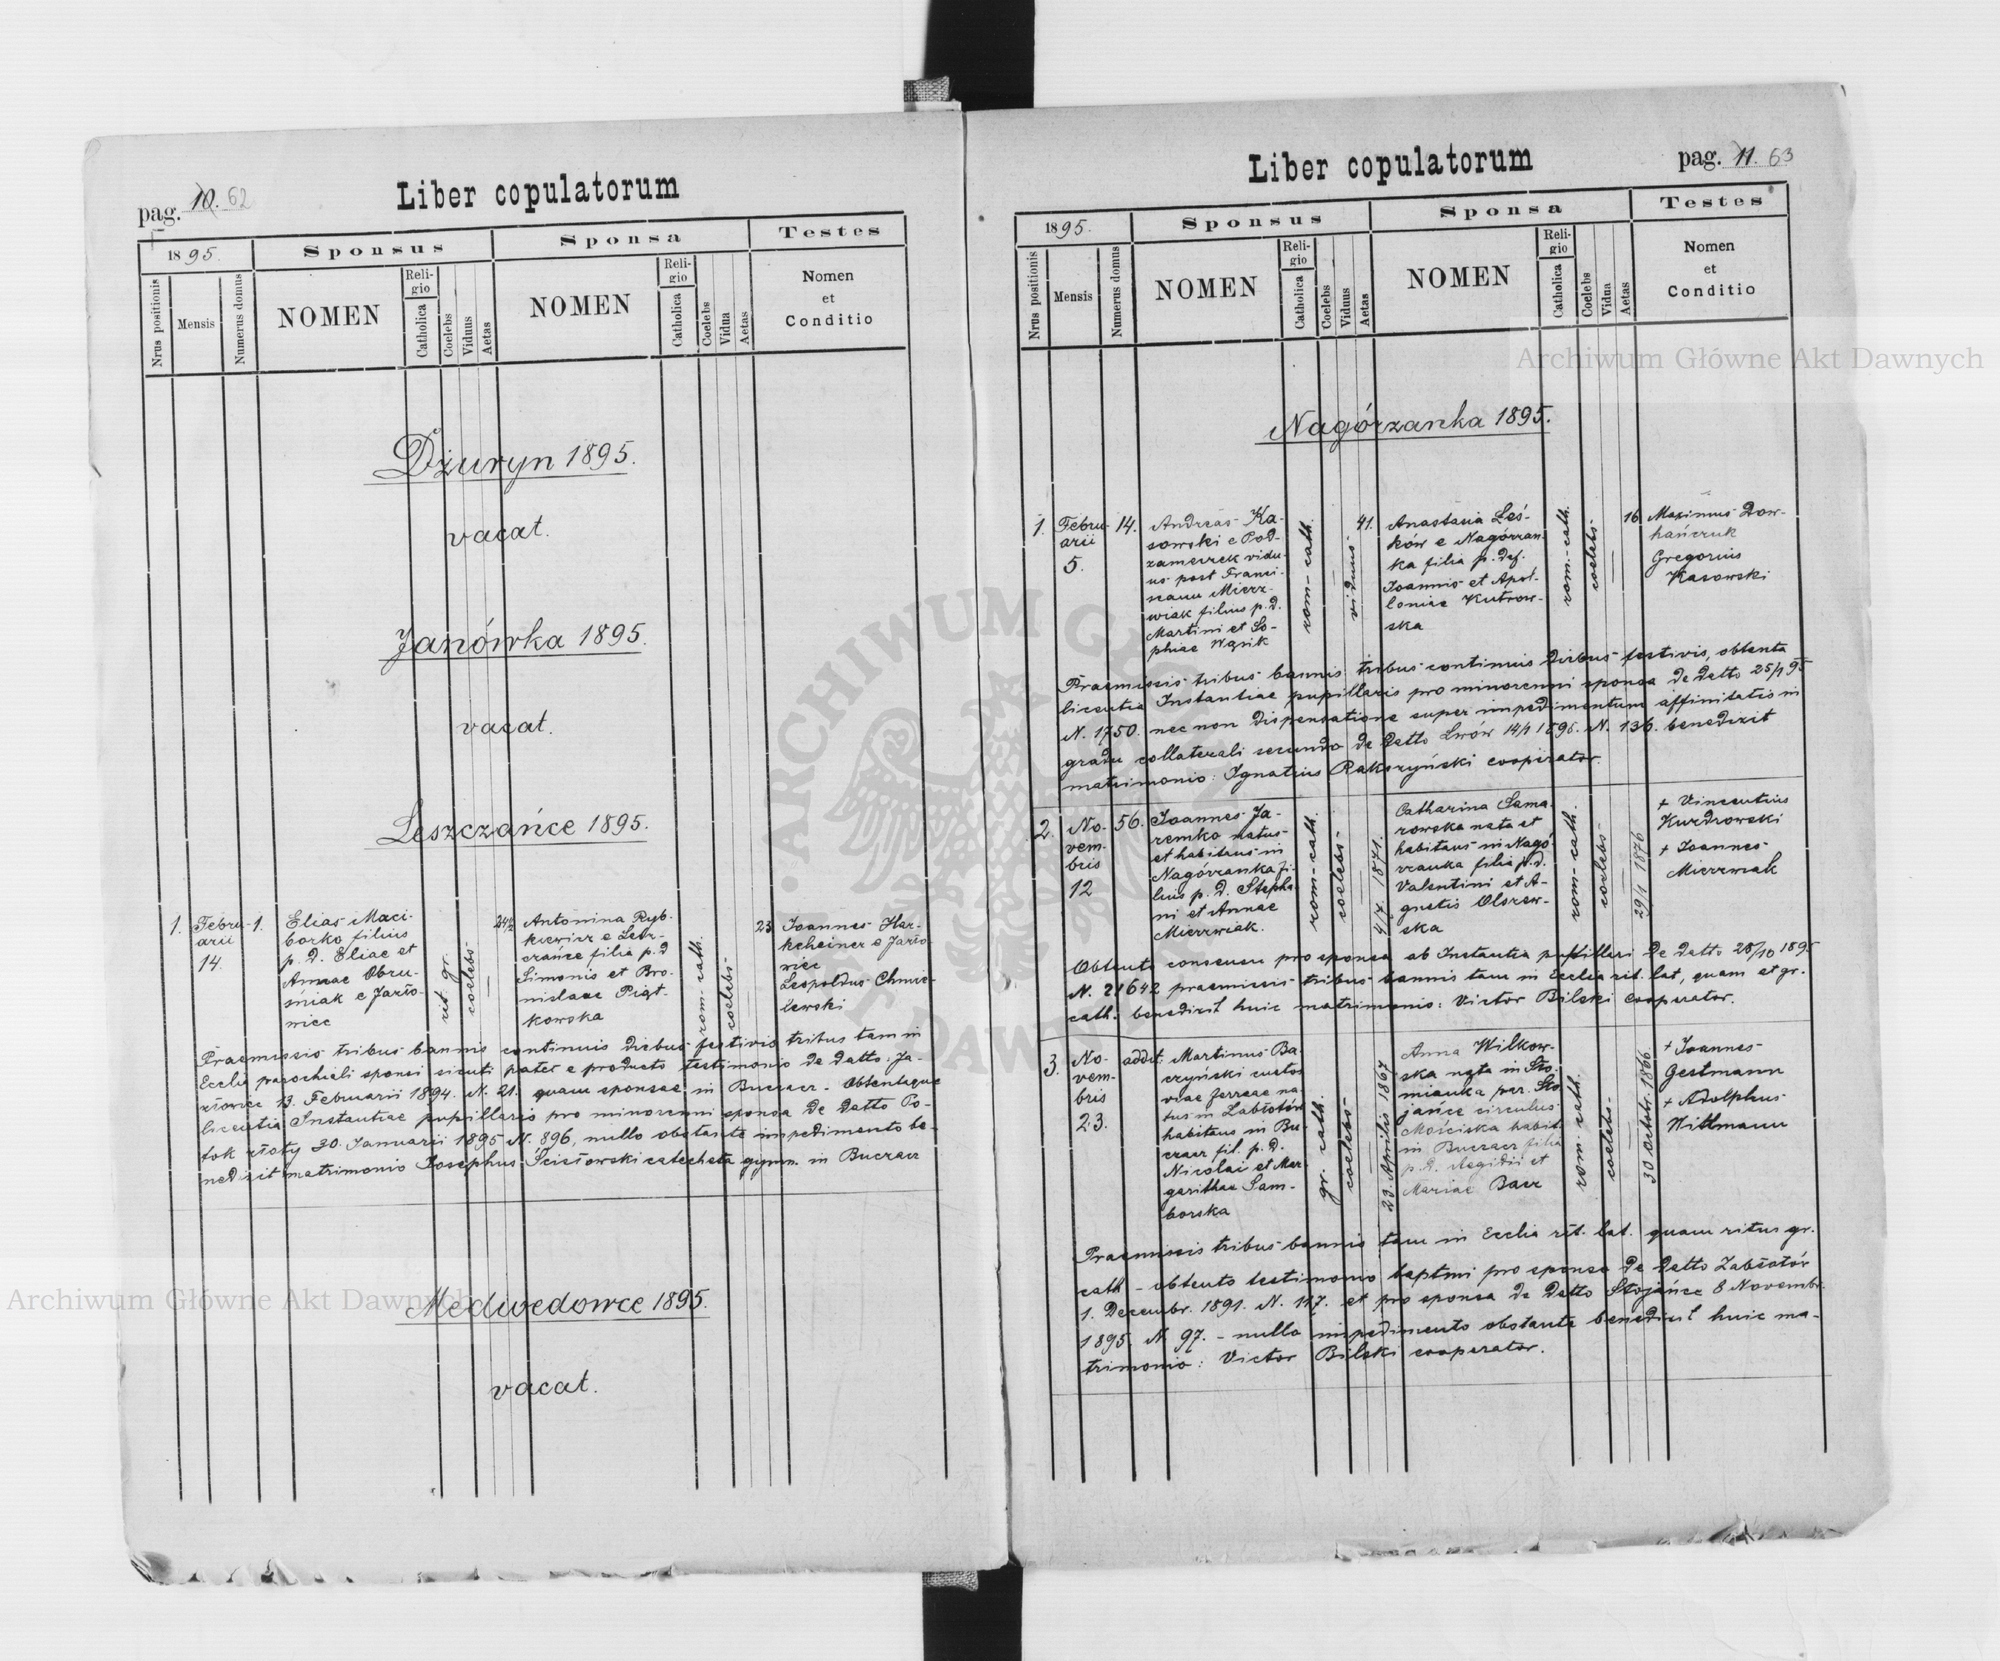 pag. 10. 62
Liber copulatorum
1895.
Sponsus
Sponsa
Testes
Nrus positionis
Mensis
Numerus domus
NOMEN
Religio
Catholica
Coelebs
Viduus
Aetas
NOMEN
Religio
Catholica
Coelebs
Vidua
Aetas
Nomen
et
Conditio
Dżuryn 1895.
vacat.
Janówka 1895.
vacat.
Leszczańce 1895.
1.
Febru-
arii
14.
1.
Elias Maci-
borko filius
p. d. Eliae et
Annae Obru-
śniak e Jazło-
wiec
rit. gr.
coelebs
24½
Antonina Ryb-
kiewicz e Lesz-
czańce filia p.d
Simonis et Bro-
nislaae Piąt-
kowska
rom-cath.
coelebs
23
Ioannes Har-
kcheiner e Jazło
wiec
Leopoldus Chmie-
lewski
Praemissis tribus bannis continuis diebus festivis tribus tam in
Ecclia parochiali sponsi sicuti patet e producto testimonio de datto Ja-
złowiec 13 Februarii 1894. N. 21. quam sponsae in Buczacz. Obtentaque
licentia Instantiae pupillaris pro minorenni sponsa de datto Po-
tok złoty 30. Januarii 1895 N. 896, nullo obstante impedimento be-
nedixit matrimonio Josephus Ścisłowski catecheta gymn. in Buczacz
Medwedowce 1895.
vacat.
pag. 11. 63
Liber copulatorum
1895.
Sponsus
Sponsa
Testes
Nrus positionis
Mensis
Numerus domus
NOMEN
Religio
Catholica
Coelebs
Viduus
Aetas
NOMEN
Religio
Catholica
Coelebs
Vidua
Aetas
Nomen
et
Conditio
Nagórzanka 1895.
1.
Febru-
arii
5.
14.
Andreas Ka-
sowski e Pod-
zameczek vidu-
us post Franci-
scam Mierz-
wiak filius p.d.
Martini et So-
phiae Wąsik
rom-cath.
viduus
41.
Anastasia Leś-
ków e Nagórzan
ka filia p. def.
Joannis et Apol-
loniae Kutrow-
ska
rom-cath.
coelebs
16
Maximus Dow-
hańczuk
Gregorius
Kasowski
Praemissis tribus bannis tribus continuis diebus festivis, obtenta
licentia Instantiae pupillaris pro minorenni sponsa de datto 25/1 95
N. 1750. nec non dispensatione super impedimentum affinitatis in
gradu collaterali secundo de datto Lwów 14/1 1895. N. 136. benedixit
matrimonio: Ignatius Rakszyński cooperator.
2.
No-
vem-
bris
12
56.
Joannes Ja-
remko natus
et habitans in
Nagórzanka fi-
lius p. d. Stepha-
ni et Annae
Mierzwiak.
rom-cath.
coelebs
4/7. 1871.
Catharina Sama-
rowska nata et
habitans in Nagó-
rzanka filia p.d.
Valentini et A-
gnetis Olszew-
ska
rom-cath.
coelebs
29/1 1876
+ Vincentius
Kurdrowski
+ Joannes
Mierzwiak
Obtento consensu pro sponsa ab Instantia pupillari de datto 28/10 1895
N. 21642 praemissis tribus bannis tam in Ecclia rit. lat, quam et gr.
cath. benedixit huic matrimonio: Victor Bilski cooperator.
3.
No-
vem-
bris
23.
addit:
Martinus Ba-
czyński custos
viae ferreae na-
tus in Zabłotów
habitans in Bu-
czacz fil. p. d.
Nicolai et Mar-
garithae Sam-
borska
gr. cath.
coelebs
23. Aprilis 1867
Anna Wilkow-
ska nata in Sto-
mianka par. Sto-
jańce circulus
Mościska habit
in Buczacz filia
p. d. Aegidii et
Mariae Bacz
rom. cath.
coelebs
30 octbr. 1866.
+ Joannes
Gestmann
+ Adolphus
Wittmann
Praemissis tribus bannis tam in Ecclia rit. lat. quam ritus gr.
cath - obtento testimonio baptmi pro sponso de datto Zabłotów
1. Decembr. 1891. N. 117. et pro sponsa de datto Stojańce 8 Novembr.
1895. N. 97. - nullo impedimento obstante benedixit huic ma-
trimonio: Victor Bilski cooperator.
Archiwum Główne Akt Dawnych
Archiwum Główne Akt Dawnych